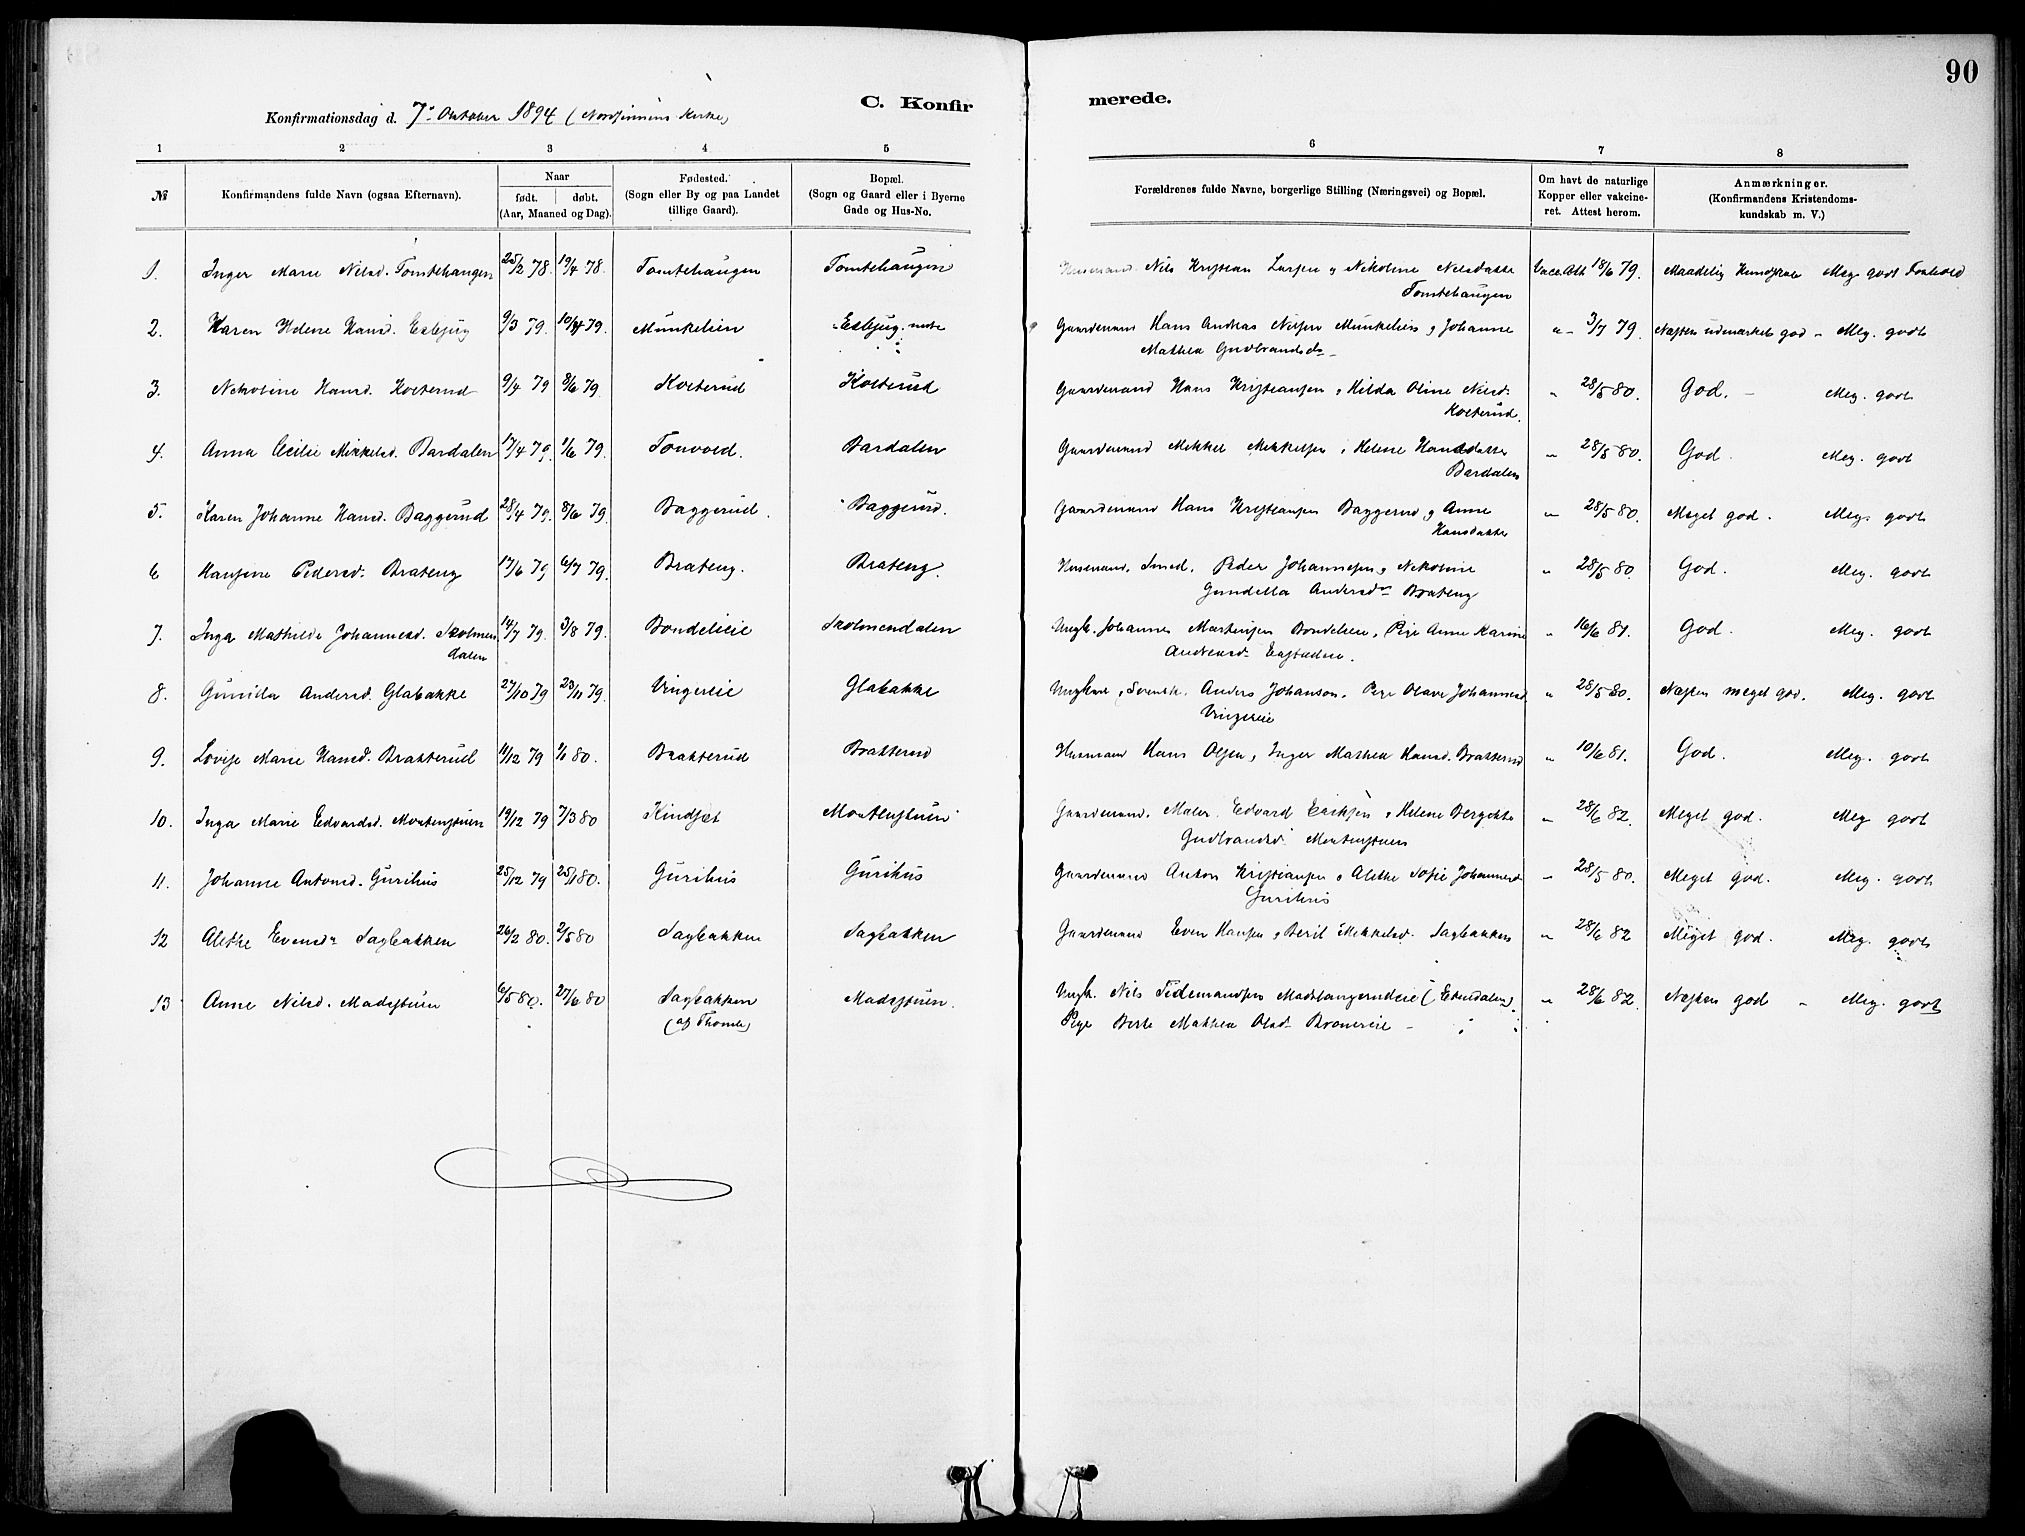 90
C. Konfir
merede.
Konfirmationsdag d. 7de Oktober 1894 (Nordsinnens Kirke)
1 2 3 4 5 6 7 8
№ Konfirmandens fulde Navn (ogsaa Efternavn). Naar født. døbt. (Aar, Maaned og Dag). Fødested. (Sogn eller By og paa Landet tillige Gaard). Bopæl. (Sogn og Gaard eller i Byerne Gade og Hus-No. Forældrenes fulde Navne, borgerlige Stilling (Næringsvei) og Bopæl. Om havt de naturlige Kopper eller vakcineret. Attest herom. Anmærkninger. (Konfirmandens Kristendomskundskab m. V.)
1. Inger Marie Nilsd. Tomtehaugen 25/2 78. 19/4 78. Tomtehaugen Tomtehaugen Husmand. Nils Kristian Larsen og Nikoline Nilsdatter Vacc. Att. 18/6 79. Maadelig Kundskab Meg. godt Forhold
Tomtehaugen
2. Karen Helene Hansd. Esbjug 9/3 79. 10/4 79. Munkelien Esbjug Gaardmand Hans Andreas Nilsen Munkelien, Johanne " 3/7 79. Næsten udmærket god - Meg. godt
Mathea Gudbrandsd.
3. Nikoline Hansd. Kolterud 9/4 79 8/6 79. Kolterud Kolterud Gaardmand Hans Kristiansen, Hilda Oline Nilsd. " 28/5 80. God. - Meg. godt
Kolterud.
4. Anna Cecilie Mikkelsd. Bardalen 17/4 79. 1/6 79. Tonvold. Bardalen Gaardmand Mikkel Mikkelsen, Helene Hansdatter " 28/5 80. God. Meg. godt
Bardalen
5. Karen Johanne Hansd. Baggerud 28/4 79. 8/6 79. Baggerud. Baggerud. Gaardmand Hans Kristiansen Baggerud og Anne " 28/5 80. Meget god. Meg. godt
Hansdatter
6 Hansine Pedersd. Brateng 17/6 79 6/7 79. Brateng. Brateng. Husmand, Smed, Peder Johannesen, Nikoline " 28/5 80. God. Meg. godt
Gundella Andersdr Brateng
7. Inga Mathilde Johannesd. Skolmen 14/7 79. 3/8 79. Bondelieie Skolmendalen Ungk. Johannes Martinsen Bondelieie, Pige Anne Karine " 16/6 81. God. Meg. godt
dalen
8. Gunilda Andersd. Glabakke 27/10 79 23/11 79. Vingereie Glabakke Ungkarl, Svensk. Anders Johanson, Pige Olave Johannesd. " 28/5 80. Næsten meget god. Meg. godt
Vingereie
9. Lovise Marie Hansd. Bratterud 11/12 79 1/1 80. Bratterud Bratterud Husmand Hans Olsen, Inger Mathea Hansd. Bratterud " 10/6 81. God. Meg. godt
10. Inga Marie Edvardsd. Mortenstuen 19/12 79 7/3 80 Kindset Mortenstuen Gaardmand. Maler. Edvard Eriksen, Helene Bergitte " 28/6 82. Meget god. Meg godt
Gudbrandsd. Mortenstuen
11. Johanne Antonsd. Gurihus 25/12 79 25/1 80. Gurihus Gurihus Gaardmand Anton Kristiansen, Alethe Sofie Johannesd. " 28/5 80. Meget god. Meg. godt
Gurihus
12 Alethe Evensdr Sagbakken 26/2 80. 2/5 80 Sagbakken Sagbakken Gaardmand Even Hansen, Beril Mikkelsd. Sagbakken " 28/6 82 Meget god. Meg. godt
13 Anne Nilsd. Madsstuen 6/5 80. 27/6 80 Sagbakken Madsstuen. Ungk. Nils Tidemandsen Madslangerudeie (Etnedalen) " 28/6 82. Næsten god - Meg. godt
(af Thomle) Pige Berte Mathea Olsd.